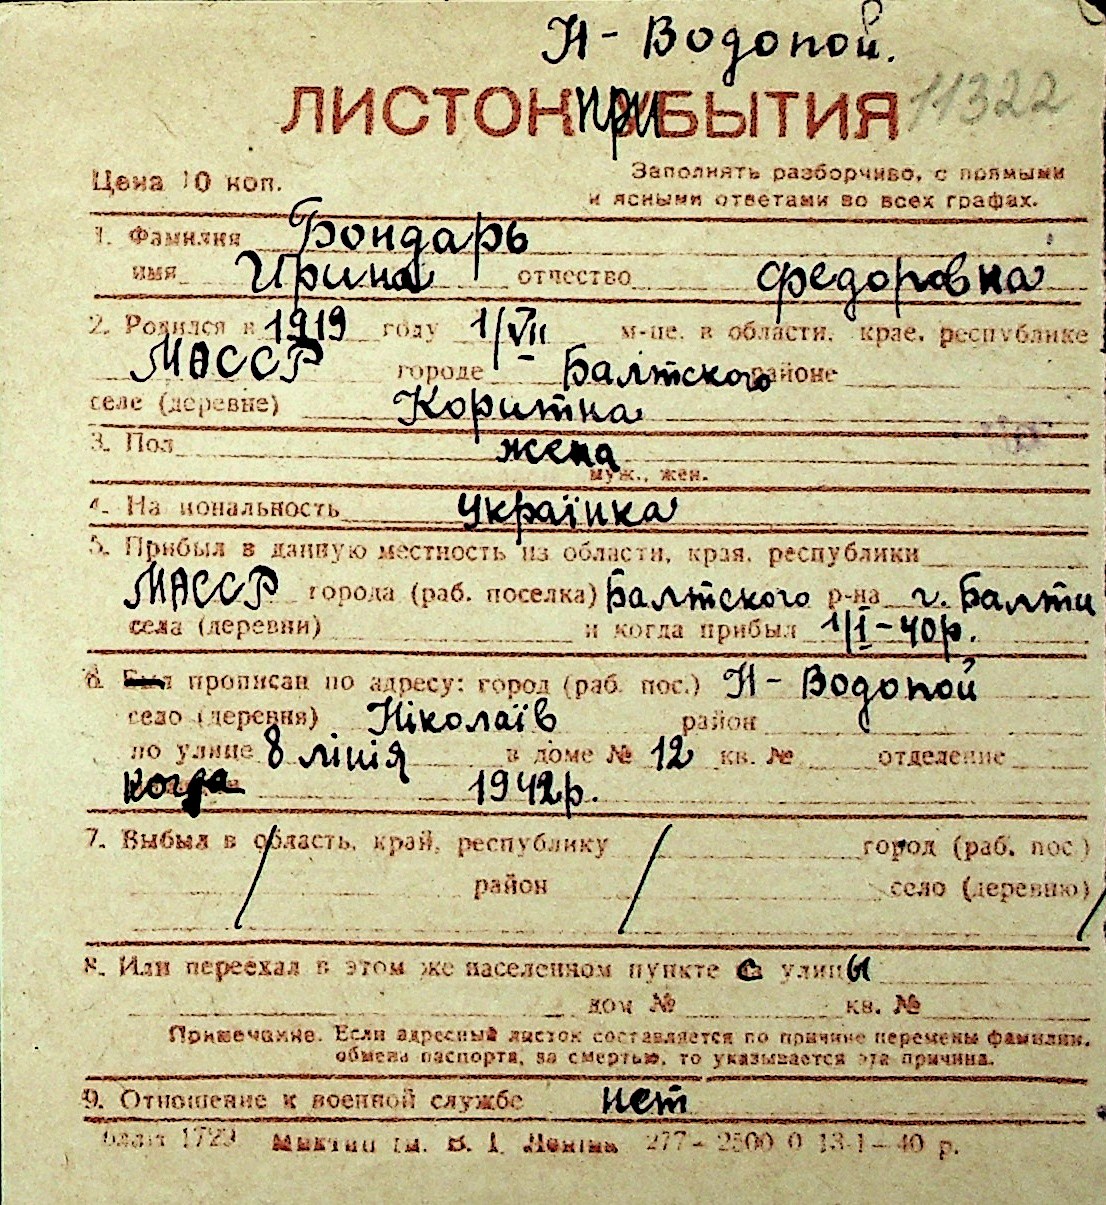 Н- Водопой.
ЛИСТОК ПРИБЫТИЯ 11322
Цена 10 коп. Заполнять разборчиво, с прямыми
и ясными ответами во всех графах.
1. Фамилия Бондарь
имя Ирина отчество Федоровна
2. Родился в 1919 году 1/VII м-це, в области, крае, республике
МАССР городе Балтского районе
селе (деревне) Коритна
3. Пол жена
муж., жен.
4. Национальность українка
5. Прибыл в данную местность из области, края, республики
МАССР города (раб. поселка) Балтского р-на г. Балти
села (деревни) и когда прибыл 1/I-40р.
6. прописан по адресу: город (раб. пос.) Н- Водопой
село (деревня) Ніколаїв район
по улице 8 лінія в доме № 12 кв. № отделение
когда 1942р.
7. Выбыл в область, край, республику город (раб. пос.)
район село (деревню)
8. Или переехал в этом же населенном пункте с улицы
дом № кв. №
Примечание. Если адресный листок составляется по причине перемены фамилии,
обмена паспорта, за смертью, то указывается эта причина.
9. Отношение к военной службе нет
1729 ім. В. І. Леніна 277-2500 0 13-1-40 р.